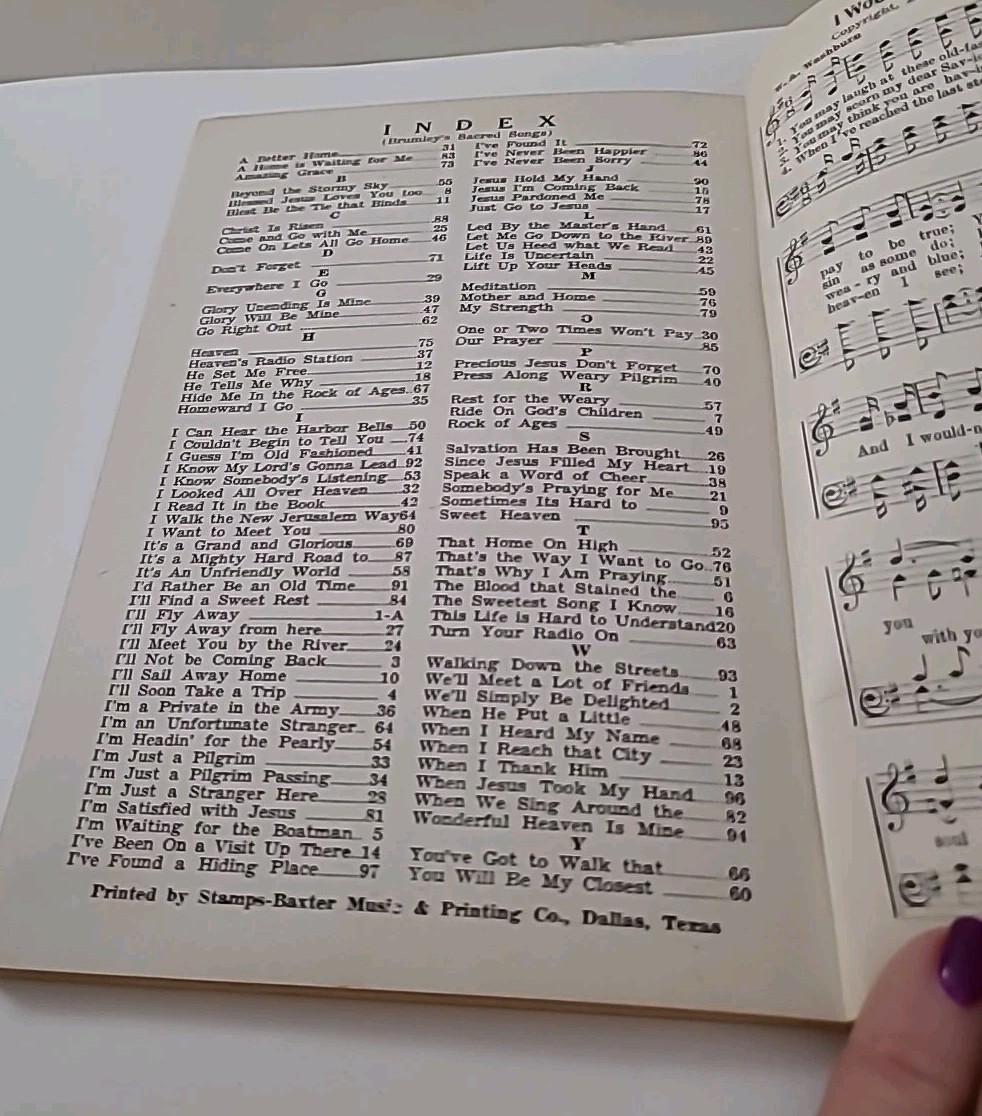 INDEX
(Brumley's Sacred Songs)
A Better Home 31
A Home is Waiting for Me 83
Amazing Grace 73
B
Beyond the Stormy Sky 55
Blessed Jesus Loves You too 8
Blest Be the Tie that Binds 11
C
Christ Is Risen 88
Come and Go with Me 25
Come On Lets All Go Home 46
D
Don't Forget 71
E
Everywhere I Go 29
G
Glory Unending Is Mine 39
Glory Will Be Mine 47
Go Right Out 62
H
Heaven 75
Heaven's Radio Station 37
He Set Me Free 12
He Tells Me Why 18
Hide Me In the Rock of Ages 67
Homeward I Go 35
I
I Can Hear the Harbor Bells 50
I Couldn't Begin to Tell You 74
I Guess I'm Old Fashioned 41
I Know My Lord's Gonna Lead 92
I Know Somebody's Listening 53
I Looked All Over Heaven 32
I Read It in the Book 42
I Walk the New Jerusalem Way 64
I Want to Meet You 80
It's a Grand and Glorious 69
It's a Mighty Hard Road to 87
It's An Unfriendly World 58
I'd Rather Be an Old Time 91
I'll Find a Sweet Rest 84
I'll Fly Away 1-A
I'll Fly Away from here 27
I'll Meet You by the River 24
I'll Not be Coming Back 3
I'll Sail Away Home 10
I'll Soon Take a Trip 4
I'm a Private in the Army 36
I'm an Unfortunate Stranger 64
I'm Headin' for the Pearly 54
I'm Just a Pilgrim 33
I'm Just a Pilgrim Passing 34
I'm Just a Stranger Here 28
I'm Satisfied with Jesus 81
I'm Waiting for the Boatman 5
I've Been On a Visit Up There 14
I've Found a Hiding Place 97
I've Found It 72
I've Never Been Happier 86
I've Never Been Sorry 44
J
Jesus Hold My Hand 90
Jesus I'm Coming Back 15
Jesus Pardoned Me 78
Just Go to Jesus 17
L
Led By the Master's Hand 61
Let Me Go Down to the River 89
Let Us Heed what We Read 43
Life Is Uncertain 22
Lift Up Your Heads 45
M
Meditation 59
Mother and Home 76
My Strength 79
O
One or Two Times Won't Pay 30
Our Prayer 85
P
Precious Jesus Don't Forget 70
Press Along Weary Pilgrim 40
R
Rest for the Weary 57
Ride On God's Children 7
Rock of Ages 49
S
Salvation Has Been Brought 26
Since Jesus Filled My Heart 19
Speak a Word of Cheer 38
Somebody's Praying for Me 21
Sometimes Its Hard to 9
Sweet Heaven 95
T
That Home On High 52
That's the Way I Want to Go 76
That's Why I Am Praying 51
The Blood that Stained the 6
The Sweetest Song I Know 16
This Life is Hard to Understand 20
Turn Your Radio On 63
W
Walking Down the Streets 93
We'll Meet a Lot of Friends 1
We'll Simply Be Delighted 2
When He Put a Little 48
When I Heard My Name 68
When I Reach that City 23
When I Thank Him 13
When Jesus Took My Hand 96
When We Sing Around the 82
Wonderful Heaven Is Mine 94
Y
You've Got to Walk that 66
You Will Be My Closest 60
Printed by Stamps-Baxter Music & Printing Co., Dallas, Texas
I Wou
Copyright,
W. A. Washburn
1. You may laugh at these old-fas
2. You may scorn my dear Sav-i
3. You may think you are hav-i
4. When I've reached the last st
pay to be true;
sin as some do;
wea - ry and blue;
heav-en I see;
And I would-n
you with yo
soul